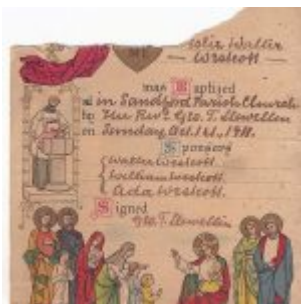 Walter
Westcott
was Baptized
at in Sandford Parish Church
by The Rev. Geo. T. Llewellin
on Sunday Oct. 1st, 1911.
Sponsors
Walter Westcott.
William Westcott.
Ada Westcott.
Signed
Geo. T. Llewellin